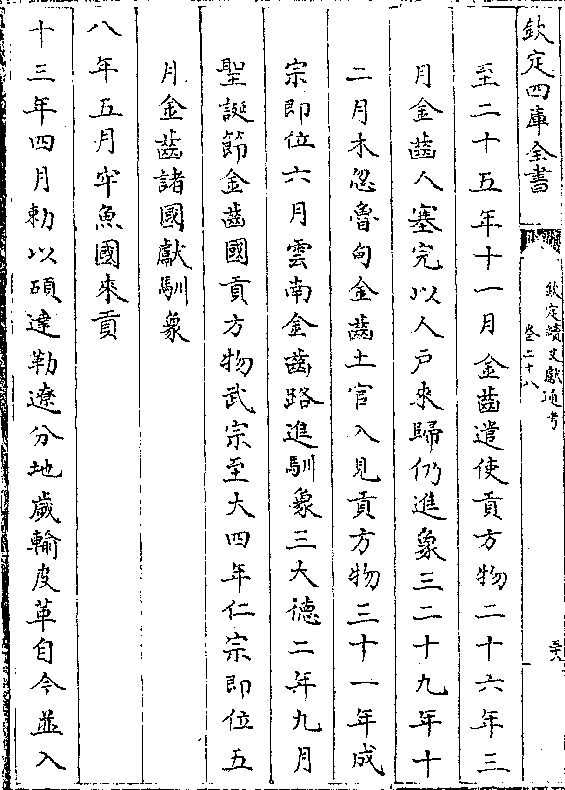 欽定四庫全書
欽定續文獻通考
卷二十八
至二十五年十一月金齒遣使貢方物二十六年三
月金齒人塞完以人戸來歸仍進象三二十九年十
二月木忽魯甸金齒土官入見貢方物三十一年成
宗即位六月雲南金齒路進馴象三大德二年九月
聖誕節金齒國貢方物武宗至大四年仁宗即位五
月金齒諸國獻馴象
八年五月牢魚國來貢
十三年四月勅以碩達勒遼分地歲輸皮革自今並入